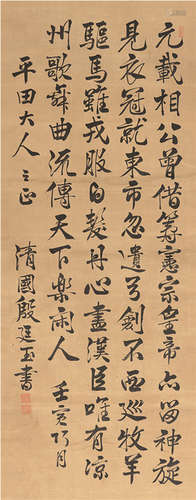 元載相公曾借箸憲宗皇帝亦留神旋
見衣冠就東市忽遺弓劍不西巡牧羊
驅馬雖戎服白髮丹心盡漢臣唯有涼
州歌舞曲流傳天下樂閑人 壬寅巧月
平田大人之正
清國殷廷玉書